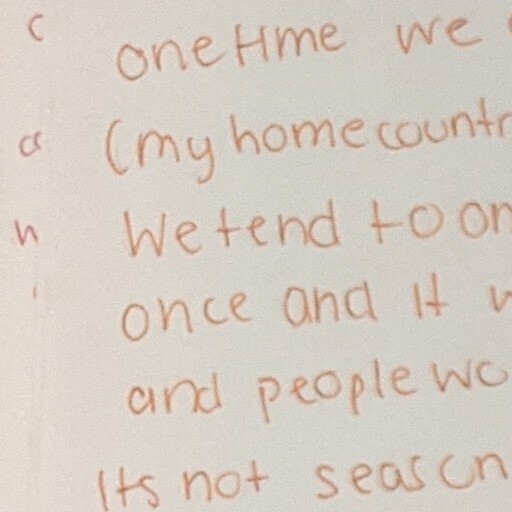 c one time we
a (my home countr
n We tend to on
i once and It w
and people wo
Its not seascn